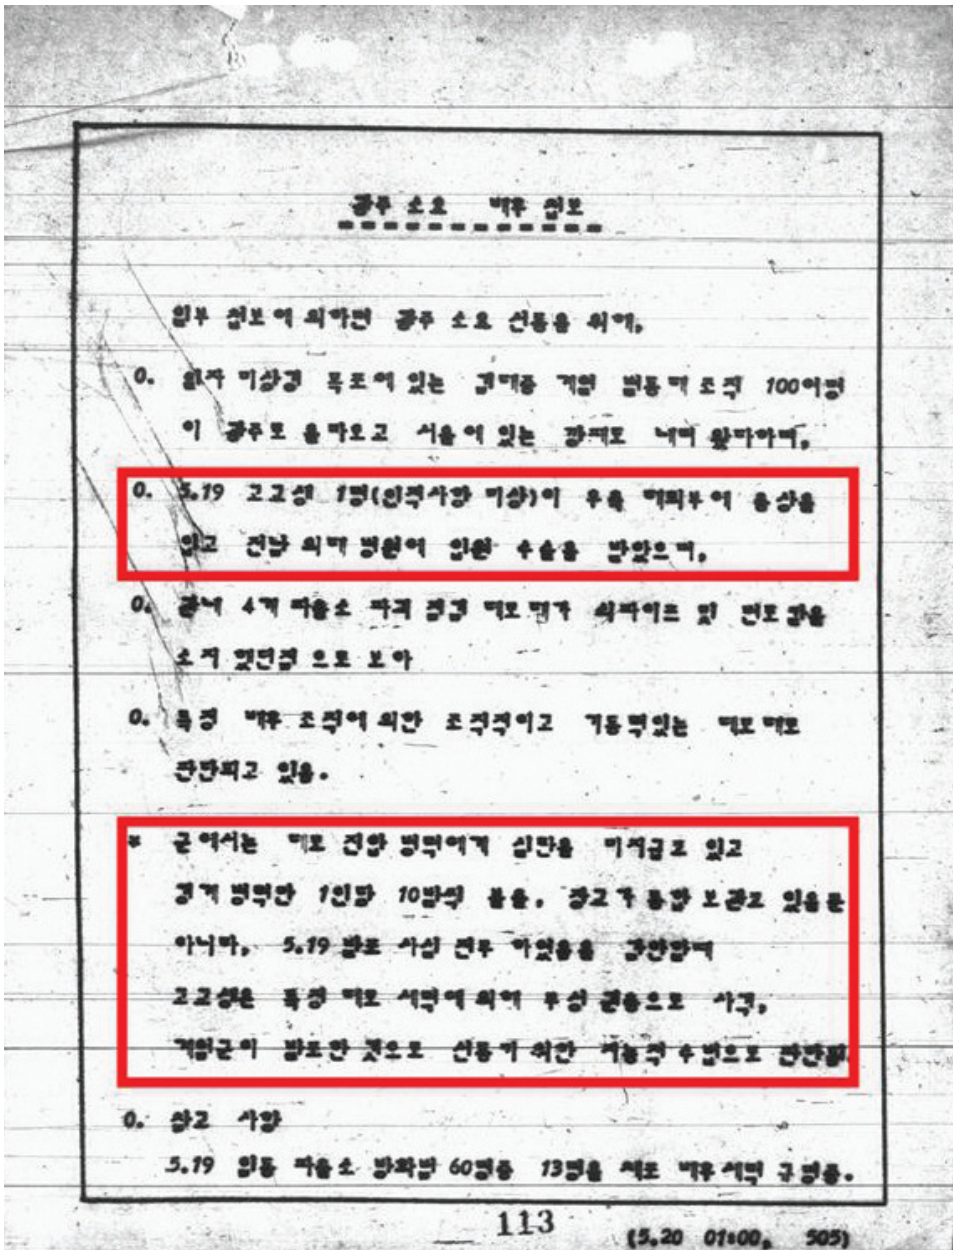 광주 소요 배후 첩보
일부 첩보에 의하면 광주 소요 선동을 위해,
0. 일자 미상경 목포에 있는 김대중 계열 조직 100여명
이 광주로 올라오고 서울에 있는 깡패도 내려 왔다하며,
0. 5.19 고교생 1명(인적사항 미상)이 우측 대퇴부에 총상을
입고 전남 의대 병원에 입원 수술을 받았으며,
0. 관내 4개 파출소 파괴 점거 데모대가 쇠파이프 및 면도칼을
소지 했던점 으로 보아
0. 특정 배후 조직에 의한 조직적이고 기동력있는 데모
판단되고 있음.
* 군에서는 데모 진압 병력에게 실탄을 미지급코 있고
경계 병력만 1인당 10발씩 장교가 통합 보관코 있을뿐
아니라, 5.19 발포 사실 전무 하였음을 감안할때
고교생은 특정 데모 세력에 의해 무성 권총으로 사격,
계엄군이 발포한 것으로 선동키 위한 지능적 수법으로 판단됨.
0. 참고 사항
5.19 임동 파출소 방화범 60명중 13명을 체포 배후세력 규명중.
113
(5.20 01:00, 505)